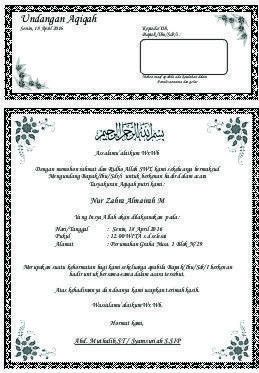 Undangan Aqiqah
Senin, 18 April 2016
Kepada Yth,
Bapak/Ibu/Sdr/i :
Mohon maaf apabila ada kesalahan dalam
Penulisan nama dan gelar
بسم الله الرحمن الرحيم
Assalamu'alaikum Wr.Wb.
Dengan memohon rahmat dan Ridho Allah SWT, kami sekeluarga bermaksud
Mengundang Bapak/Ibu/Sdr/i untuk berkenan hadir dalam acara
Tasyakuran Aqiqah putri kami :
Nur Zahra Almairah M
Yang Insya Allah akan dilaksanakan pada :
Hari/Tanggal : Senin, 18 April 2016
Pukul : 12.00 WITA s.d selesai
Alamat : Perumahan Graha Nusa. 1 Blok N/29
Merupakan suatu kehormatan bagi kami sekeluarga apabila Bapak/Ibu/Sdr/I berkenan
hadir untuk bersama-sama dalam acara tersebut.
Atas kehadirannya di rumah kami ucapkan terimah kasih.
Wassalamu'alaikum Wr.Wb.
Hormat kami,
Abd. Muthalib,ST / Syamsuriah S,SIP